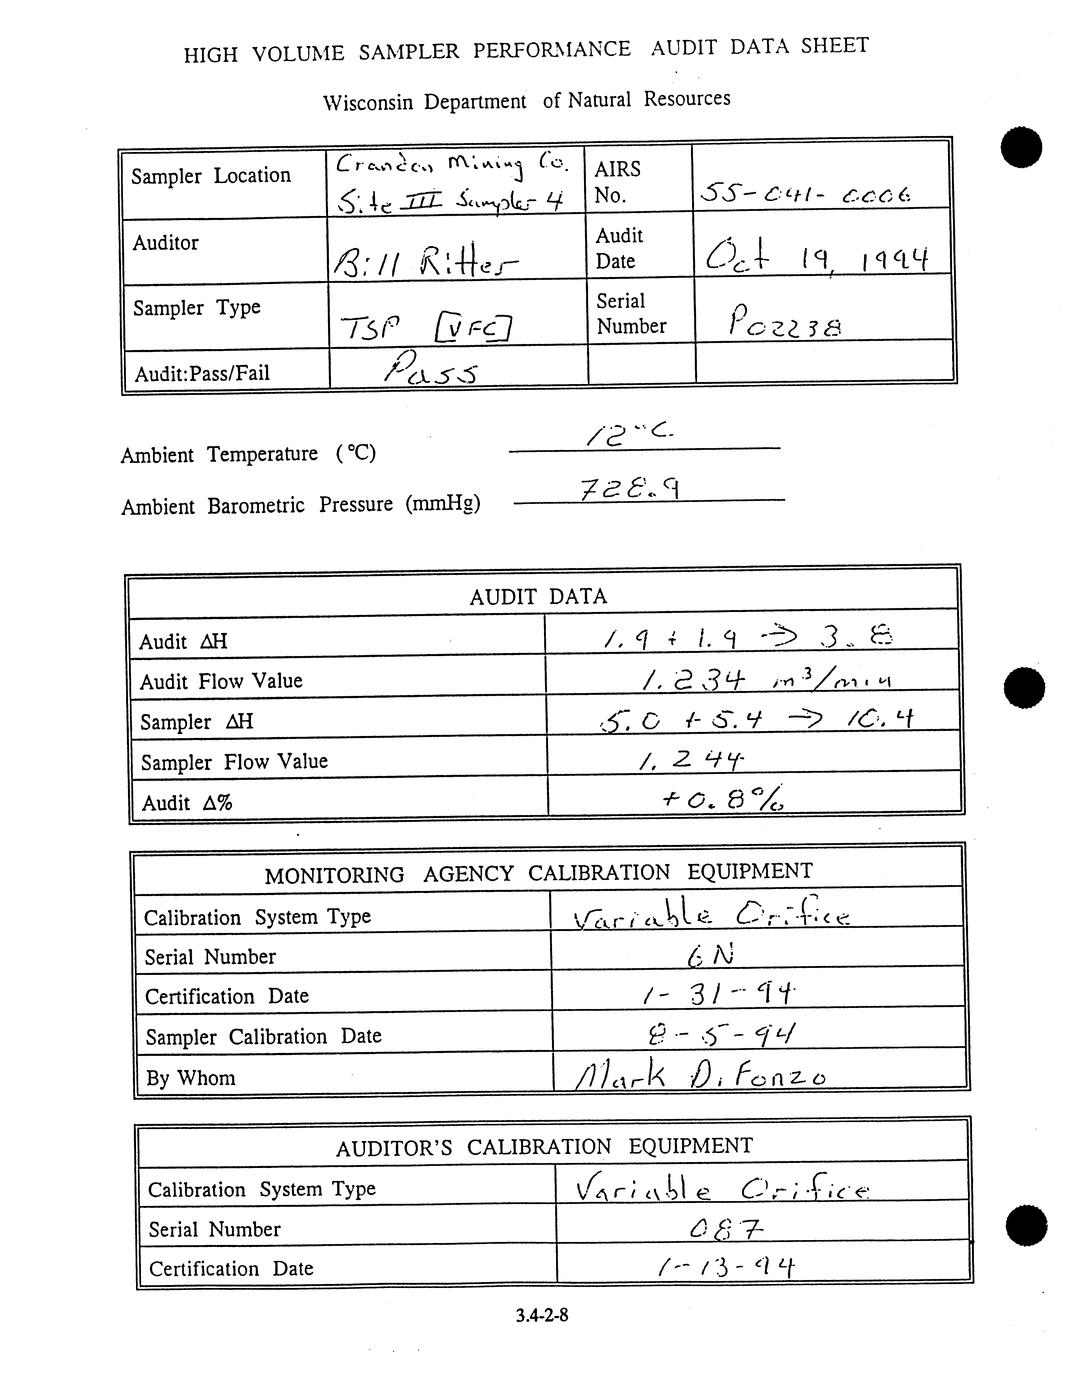 HIGH VOLUME SAMPLER PERFORMANCE AUDIT DATA SHEET
Wisconsin Department of Natural Resources
Sampler Location Crandon Mining Co. Site III Sampler 4 AIRS No. 55-041-0006
Auditor Bill Ritter Audit Date Oct 19, 1994
Sampler Type TSP [VFC] Serial Number P02238
Audit:Pass/Fail Pass
Ambient Temperature (°C) 12°C
Ambient Barometric Pressure (mmHg) 728.9
AUDIT DATA
Audit ΔH 1.9 + 1.9 → 3.8
Audit Flow Value 1.234 m³/min
Sampler ΔH 5.0 + 5.4 → 10.4
Sampler Flow Value 1.244
Audit Δ% +0.8%
MONITORING AGENCY CALIBRATION EQUIPMENT
Calibration System Type Variable Orifice
Serial Number 6N
Certification Date 1-31-94
Sampler Calibration Date 8-5-94
By Whom Mark DiFonzo
AUDITOR'S CALIBRATION EQUIPMENT
Calibration System Type Variable Orifice
Serial Number 087
Certification Date 1-13-94
3.4-2-8